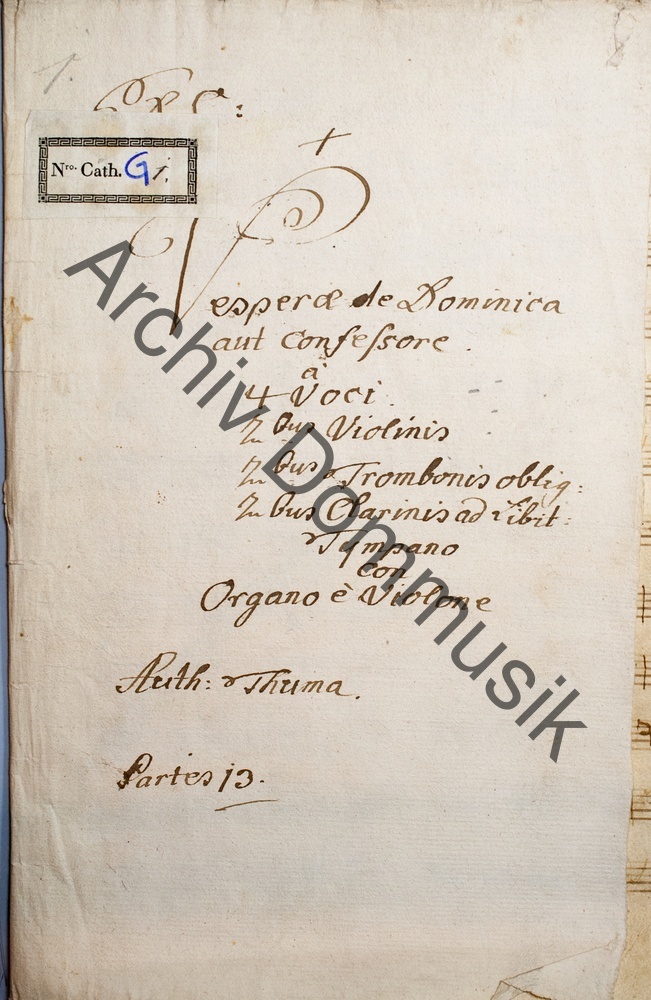 1.
Nro. Cath. G 1.
Vesperæ de Dominica
aut Confeſsore.
à
4 Voci.
2bus Violinis
2bus Trombonis oblig:
2bus Clarinis ad Libit:
Tympano
con
Organo è Violone
Auth: Thuma.
Partes 13.
Archiv Dommusik